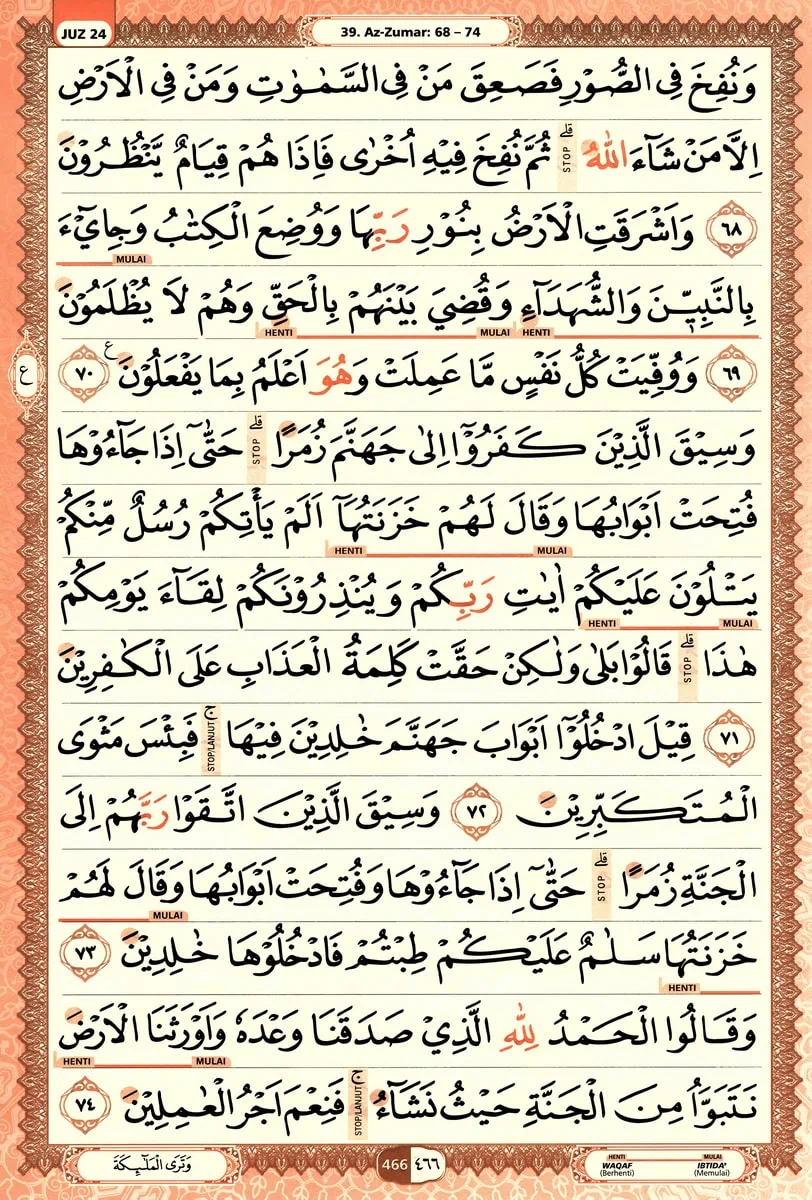 JUZ 24
39. Az-Zumar: 68 – 74
وَنُفِخَ فِى الصُّوْرِ فَصَعِقَ مَنْ فِى السَّمٰوٰتِ وَمَنْ فِى الْاَرْضِ
اِلَّا مَنْ شَاۤءَ اللّٰهُ ۗ STOP ثُمَّ نُفِخَ فِيْهِ اُخْرٰى فَاِذَا هُمْ قِيَامٌ يَّنْظُرُوْنَ
٦٨ وَاَشْرَقَتِ الْاَرْضُ بِنُوْرِ رَبِّهَا وَوُضِعَ الْكِتٰبُ وَجِايْۤءَ
MULAI
بِالنَّبِيّٖنَ وَالشُّهَدَاۤءِ وَقُضِيَ بَيْنَهُمْ بِالْحَقِّ وَهُمْ لَا يُظْلَمُوْنَ
HENTI MULAI HENTI
٦٩ وَوُفِّيَتْ كُلُّ نَفْسٍ مَّا عَمِلَتْ وَهُوَ اَعْلَمُ بِمَا يَفْعَلُوْنَ ࣖ ٧٠
ع
وَسِيْقَ الَّذِيْنَ كَفَرُوْٓا اِلٰى جَهَنَّمَ زُمَرًا ۗ STOP حَتّٰىٓ اِذَا جَاۤءُوْهَا
فُتِحَتْ اَبْوَابُهَا وَقَالَ لَهُمْ خَزَنَتُهَآ اَلَمْ يَأْتِكُمْ رُسُلٌ مِّنْكُمْ
MULAI HENTI
يَتْلُوْنَ عَلَيْكُمْ اٰيٰتِ رَبِّكُمْ وَيُنْذِرُوْنَكُمْ لِقَاۤءَ يَوْمِكُمْ
MULAI HENTI
هٰذَا ۗ STOP قَالُوْا بَلٰى وَلٰكِنْ حَقَّتْ كَلِمَةُ الْعَذَابِ عَلَى الْكٰفِرِيْنَ
٧١ قِيْلَ ادْخُلُوْٓا اَبْوَابَ جَهَنَّمَ خٰلِدِيْنَ فِيْهَا ۚ STOP/LANJUT فَبِئْسَ مَثْوَى
الْمُتَكَبِّرِيْنَ ٧٢ وَسِيْقَ الَّذِيْنَ اتَّقَوْا رَبَّهُمْ اِلَى
الْجَنَّةِ زُمَرًا ۗ STOP حَتّٰىٓ اِذَا جَاۤءُوْهَا وَفُتِحَتْ اَبْوَابُهَا وَقَالَ لَهُمْ
MULAI
خَزَنَتُهَا سَلٰمٌ عَلَيْكُمْ طِبْتُمْ فَادْخُلُوْهَا خٰلِدِيْنَ ٧٣
HENTI
وَقَالُوا الْحَمْدُ لِلّٰهِ الَّذِيْ صَدَقَنَا وَعْدَهٗ وَاَوْرَثَنَا الْاَرْضَ
MULAI HENTI
نَتَبَوَّاُ مِنَ الْجَنَّةِ حَيْثُ نَشَاۤءُ ۚ STOP/LANJUT فَنِعْمَ اَجْرُ الْعٰمِلِيْنَ ٧٤
وَتَرَى الْمَلٰۤىِٕكَةَ
466 ٤٦٦
HENTI MULAI
WAQAF IBTIDA'
(Berhenti) (Memulai)